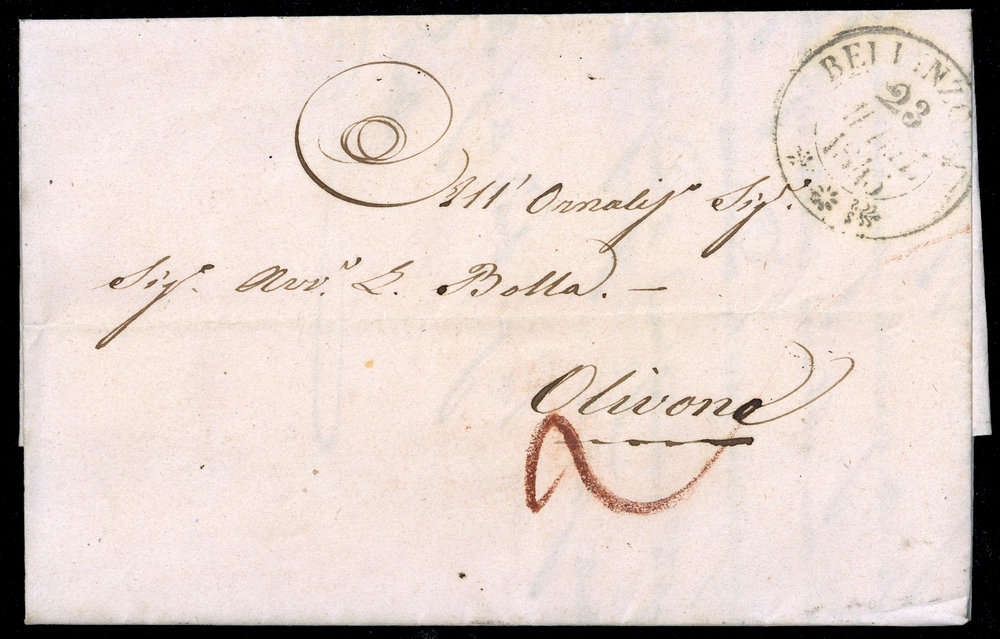 BELLINZO
23
All' Ornatiss.º Sig.
Sig.e Avv.º L. Bolla. —
Olivone
2